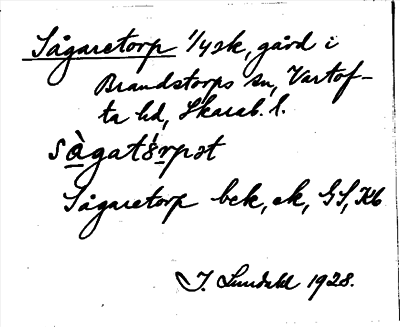 Sågaretorp 1/4 sk, gård i
Brandstorps sn, Vartof-
ta hd, Skarab. l.
sàgatɵrpət
Sågaretorp bek, ek, GS, Kb
J. Sundahl 1928.